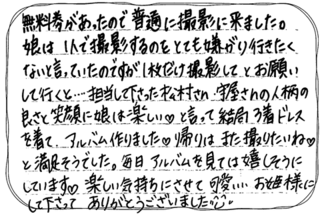 無料券があったので普通に撮影に来ました。
娘は1人で撮影するのをとても嫌がり行きたく
ないと言っていたのですが1枚だけ撮影してとお願い
して行くと…担当して下さった松村さん、守屋さんの人柄の
良さと笑顔に娘は楽しい♡と言って結局3着ドレス
を着て、アルバム作りました♡帰りはまた撮りたいね♡
と満足そうでした。毎日アルバムを見ては嬉しそうに
しています♡楽しい気持ちにさせて可愛い…お姫様に
して下さってありがとうございました